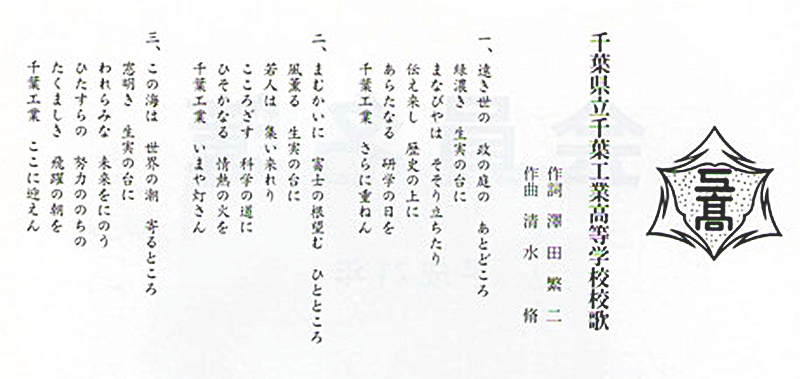 千葉県立千葉工業高等学校校歌
作詞 澤田繁二
作曲 清水脩
一、遠き世の 政の庭の あとどころ
緑濃き 生実の台に
まなびやは そそり立ちたり
伝え来し 歴史の上に
あらたなる 研学の日を
千葉工業 さらに重ねん
二、まむかいに 富士の根望む ひとところ
風薫る 生実の台に
若人は 集い来れり
こころざす 科学の道に
ひそかなる 情熱の火を
千葉工業 いまや灯さん
三、この海は 世界の潮 寄るところ
窓明き 生実の台に
われらみな 未来をにのう
ひたすらの 努力ののちの
たくましき 飛躍の朝を
千葉工業 ここに迎えん
工高